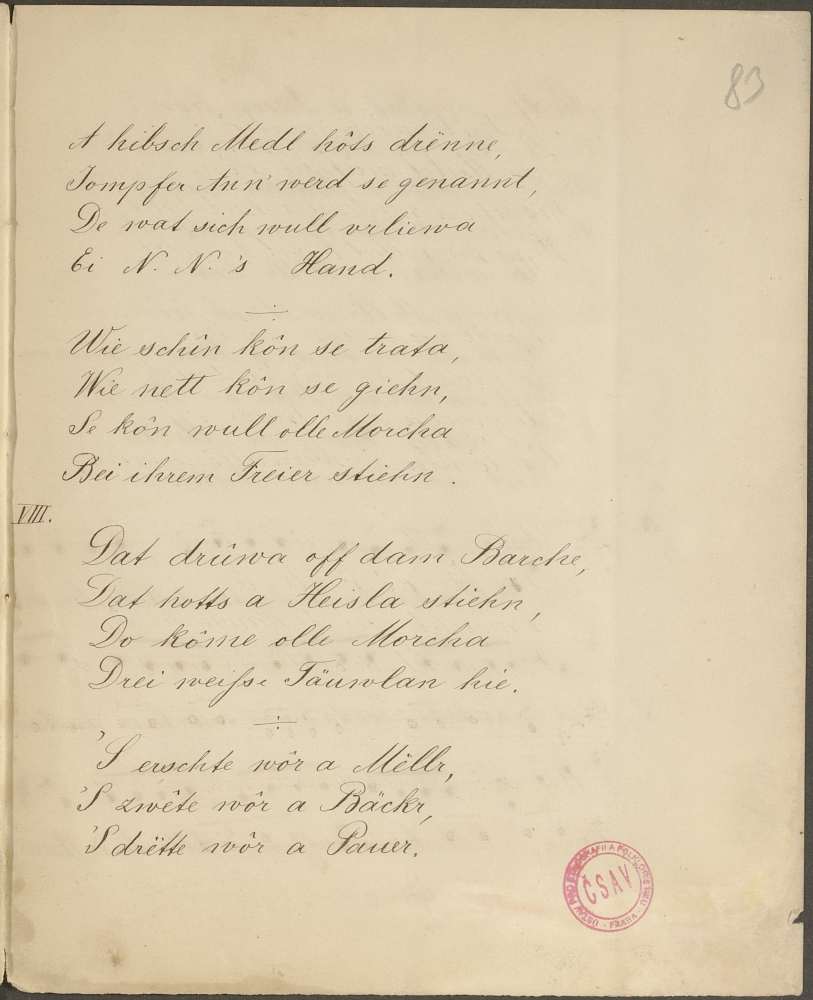 83
A hibsch Medl hôts drënne,
Jompfer Ann' werd se genannt,
De wat sich wull vrliewa
Ei N. N.'s Hand.
Wie schîn kôn se trata,
Wie nett kôn se giehn,
Se kôn wull olle Morcha
Bei ihrem Freier stiehn.
VIII.
Dat drûwa off dam Barche,
Dat hotts a Heisla stiehn,
Do kôme olle Morcha
Drei weiſse Täuwlan hie.
'S erschte wôr a Mëllr,
'S zwête wôr a Bäckr,
'S drëtte wôr a Pauer.
ÚSTAV PRO ETNOGRAFII A FOLKLORISTIKU
ČSAV
PRAHA